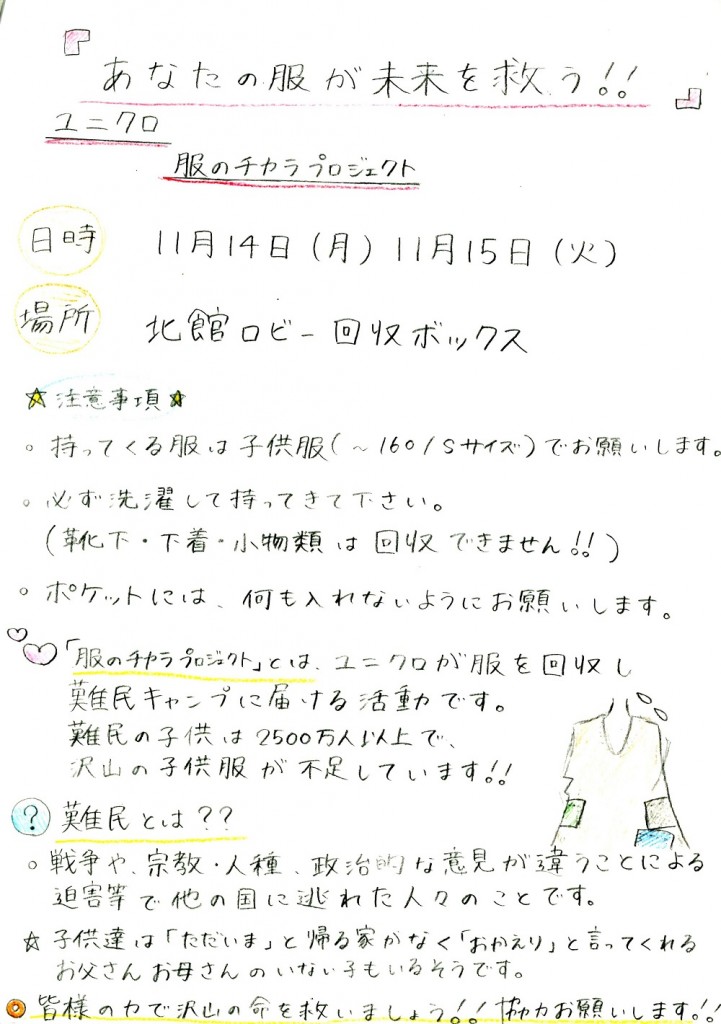 『あなたの服が未来を救う!!』
ユニクロ
服のチカラプロジェクト
日時 11月14日(月) 11月15日(火)
場所 北館ロビー回収ボックス
☆注意事項☆
○ 持ってくる服は子供服(~160/Sサイズ)でお願いします。
○ 必ず洗濯して持ってきて下さい。
(靴下・下着・小物類は回収できません!!)
○ ポケットには、何も入れないようにお願いします。
「服のチカラプロジェクト」とは、ユニクロが服を回収し
難民キャンプに届ける活動です。
難民の子供は2500万人以上で、
沢山の子供服が不足しています!!
? 難民とは??
○ 戦争や、宗教・人種、政治的な意見が違うことによる
迫害等で他の国に逃れた人々のことです。
☆ 子供達は「ただいま」と帰る家がなく「おかえり」と言ってくれる
お父さんお母さんのいない子もいるそうです。
◎ 皆様の力で沢山の命を救いましょう!! 協力お願いします!!